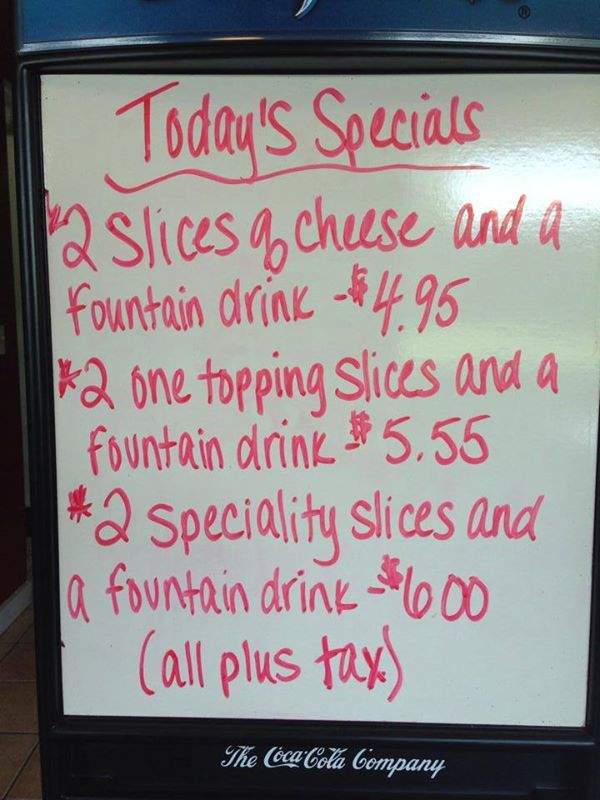 ®
Today's Specials
*2 slices of cheese and a
fountain drink - $4.95
*2 one topping slices and a
fountain drink $5.55
*2 speciality slices and
a fountain drink - $6.00
(all plus tax)
The Coca-Cola Company